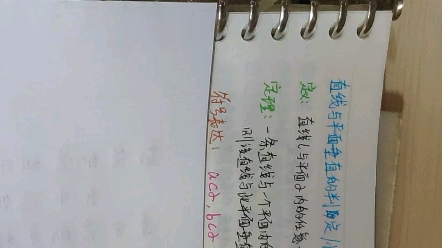 直线与平面垂直的判定
定义：直线l与平面α内的任意
定理：一条直线与一个平面内的
则该直线与此平面垂直
符号表达：a⊂α,b⊂α